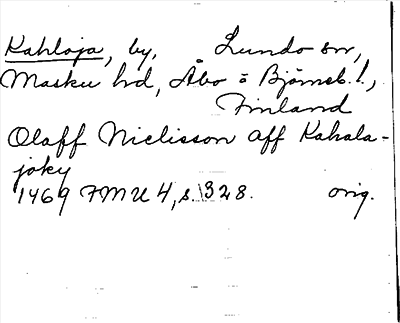 Kahloja, by, Lundo sn,
Masku hd, Åbo o Björneb. l.,
Finland
Olaff Niclisson aff Kahala-
joky
1469 FMU 4, s. 328. orig.